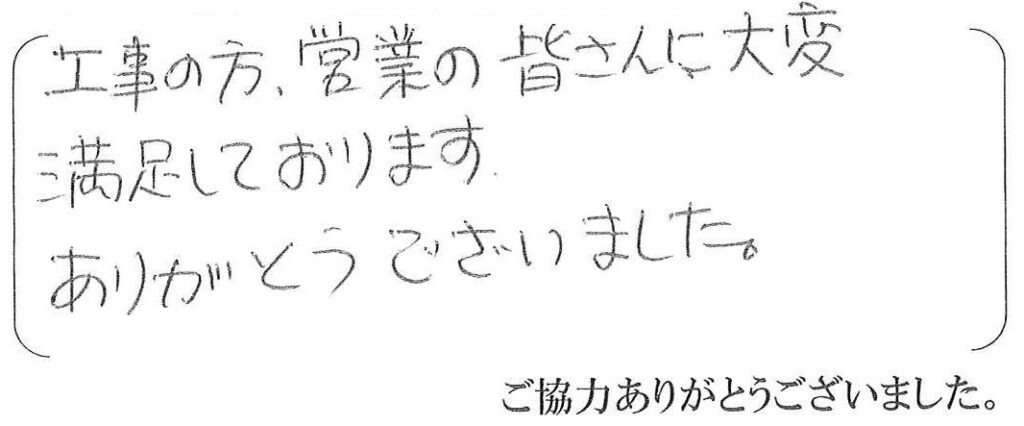 工事の方、営業の皆さんに大変
満足しております.
ありがとうございました。
ご協力ありがとうございました。